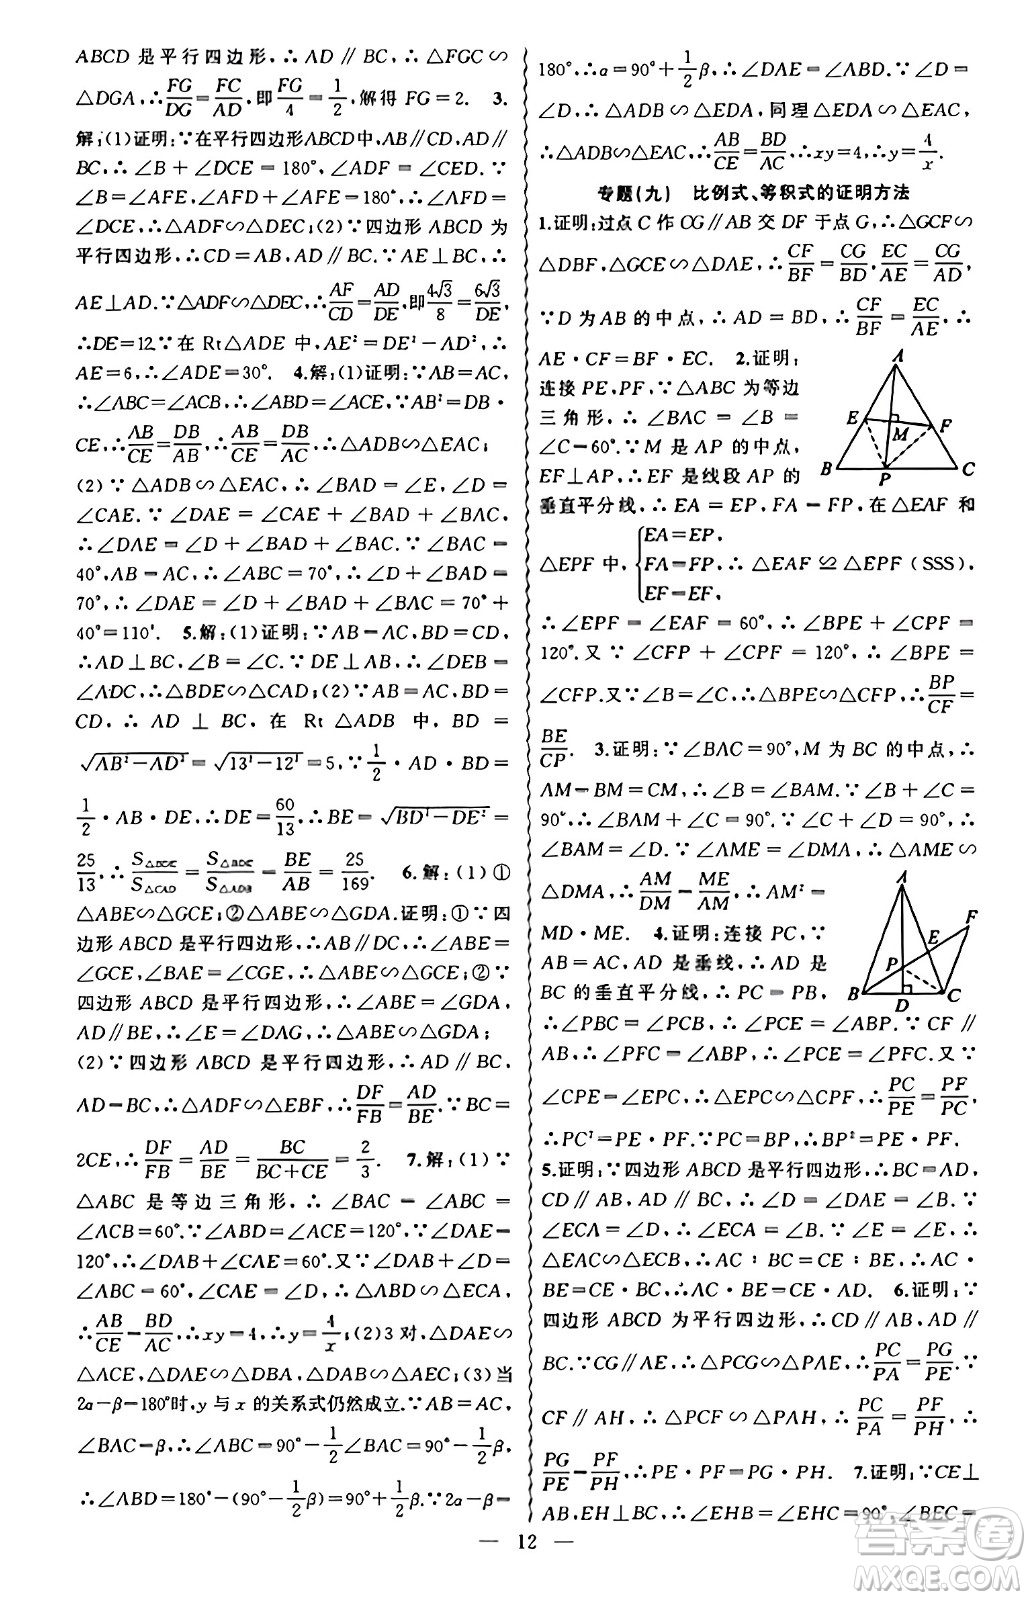 ABCD 是平行四边形,∴AD∥BC,∴△FGC∽
△DGA,∴FG/DG=FC/AD,即FG/4=1/2,解得 FG=2. 3.
解:(1)证明:∵在平行四边形ABCD中,AB∥CD,AD∥
BC,∴∠B+∠DCE=180°,∠ADF=∠CED.∵
∠B=∠AFE,∠AFD+∠AFE=180°,∴∠AFD=
∠DCE,∴△ADF∽△DEC;(2)∵四边形 ABCD 为
平行四边形,∴CD=AB,AD∥BC.∵AE⊥BC,∴
AE⊥AD.∵△ADF∽△DEC,∴AF/CD=AD/DE,即4√3/8=6√3/DE,
∴DE=12.∵在 Rt△ADE 中,AE²=DE²-AD²,∴
AE=6,∴∠ADE=30°. 4.解:(1)证明:∵AB=AC,
∴∠ABC=∠ACB,∴∠ABD=∠ACE.∵AB²=DB·
CE,∴AB/CE=DB/AB,∴AB/CE=DB/AC,∴△ADB∽△EAC;
(2)∵△ADB∽△EAC,∴∠BAD=∠E,∠D=
∠CAE.∵∠DAE=∠CAE+∠BAD+∠BAC,
∴∠DAE=∠D+∠BAD+∠BAC.∵∠BAC=
40°,AB=AC,∴∠ABC=70°,∴∠D+∠BAD=
70°,∴∠DAE=∠D+∠BAD+∠BAC=70°+
40°=110°. 5.解:(1)证明:∵AB=AC,BD=CD,
∴AD⊥BC,∠B=∠C.∵DE⊥AB,∴∠DEB=
∠ADC,∴△BDE∽△CAD;(2)∵AB=AC,BD=
CD,∴AD⊥BC,在 Rt△ADB 中,BD=
√AB²-AD²=√13²-12²=5,∵1/2·AD·BD=
1/2·AB·DE,∴DE=60/13,∴BE=√BD²-DE²=
25/13,∴S△BDE/S△CAD=S△BDE/S△ADB=BE/AB=25/169. 6.解:(1)①
△ABE∽△GCE;②△ABE∽△GDA.证明:①∵四
边形 ABCD 是平行四边形,∴AB∥DC,∴∠ABE=
∠GCE,∠BAE=∠CGE,∴△ABE∽△GCE;②∵
四边形 ABCD 是平行四边形,∴∠ABE=∠GDA,
AD∥BE,∴∠E=∠DAG,∴△ABE∽△GDA;
(2)∵四边形 ABCD 是平行四边形,∴AD∥BC,
AD=BC,∴△ADF∽△EBF,∴DF/FB=AD/BE.∵BC=
2CE,∴DF/FB=AD/BE=BC/BC+CE=2/3. 7.解:(1)∵
△ABC 是等边三角形,∴∠BAC=∠ABC=
∠ACB=60°.∵∠ABD=∠ACE=120°,∠DAE=
120°,∴∠DAB+∠CAE=60°.又∵∠DAB+∠D=
∠ABC=60°,∴∠CAE=∠D,∴△ABD∽△ECA,
∴AB/CE=BD/AC,∴xy=4,∴y=4/x;(2)3对,△DAE∽
△ACE,△DAE∽△DBA,△DAB∽△AEC;(3)当
2α-β=180°时,y 与 x 的关系式仍然成立.∵AB=AC,
∠BAC=β,∴∠ABC=90°-1/2β,∠BAC=90°-1/2β,
∴∠ABD=180°-(90°-1/2β)=90°+1/2β.∵2α-β=
180°,∴α=90°+1/2β,∴∠DAE=∠ABD.∵∠D=
∠D,∴△ADB∽△EDA,同理△EDA∽△EAC,
∴△ADB∽△EAC,∴AB/CE=BD/AC,∴xy=4,∴y=4/x.
专题(九) 比例式、等积式的证明方法
1.证明:过点 C 作 CG∥AB 交 DF 于点 G,∴△GCF∽
△DBF,△GCE∽△DAE,∴CF/BF=CG/BD,EC/AE=CG/AD,
∵D 为 AB 的中点,∴AD=BD,∴CF/BF=EC/AE,∴
AE·CF=BF·EC. 2.证明:
连接 PE,PF,∵△ABC 为等边
三角形,∴∠BAC=∠B=
∠C=60°.∵M 是 AP 的中点,
EF⊥AP,∴EF 是线段 AP 的
垂直平分线,∴EA=EP,FA=FP,在△EAF 和
△EPF 中,{EA=EP, FA=FP, EF=EF, ∴△EAF≌△EPF(SSS),
∴∠EPF=∠EAF=60°,∴∠BPE+∠CFP=
120°.又∵∠CFP+∠CPF=120°,∴∠BPE=
∠CFP.又∵∠B=∠C,∴△BPE∽△CFP,∴BP/CF=
BE/CP. 3.证明:∵∠BAC=90°,M 为 BC 的中点,∴
AM=BM=CM,∴∠B=∠BAM.∵∠B+∠C=
90°,∠BAM+∠MAC=90°,∴∠C=∠MAC,
∠BAM=∠D,∴∠E=∠DMA,∴△AME∽
△DMA,∴AM/DM=ME/AM,∴AM²=
MD·ME. 4.证明:连接 PC,∵
AB=AC,AD 是垂线,∴AD 是
BC 的垂直平分线,∴PC=PB,
∴∠PBC=∠PCB,∴∠PCE=∠ABP.∵CF∥
AB,∴∠PFC=∠ABP,∴∠PCE=∠PFC.又∵
∠CPE=∠EPC,∴△CPE∽△CPF,∴PC/PE=PF/PC,
∴PC²=PE·PF.∵PC=BP,∴BP²=PE·PF.
5.证明:∵四边形 ABCD 是平行四边形,∴BC=AD,
CD∥AB,AD∥BC,∴∠D=∠EAF=∠B.∵
∠ECA=∠D,∴∠ECA=∠B.∵∠E=∠E,∴
△EAC∽△ECB,∴AC∶BC=CE∶BE,∴AC·
BE=CE·BC,∴AC·BE=CE·AD. 6.证明:∵
四边形 ABCD 为平行四边形,∴CD∥AB,AD∥
BC.∵CG∥AE,∴△PCG∽△PAE,∴PC/PA=PG/PE.∵
CF∥AH,∴△PCF∽△PAH,∴PC/PA=PF/PH,∴
PG/PE=PF/PH,∴PE·PF=PG·PH. 7.证明:∵CE⊥
AB,EH⊥BC,∴∠EHB=∠EHC=90°,∠BEC=
A
E
M
F
B
P
C
A
F
E
P
B
D
C
— 12 —
答案圈
MXQE.COM